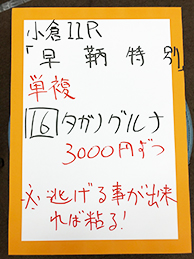 小倉11R
「早鞆特別」
単複
16 タガノグルナ
3000円ずつ
※逃げる事が出来
れば粘る!